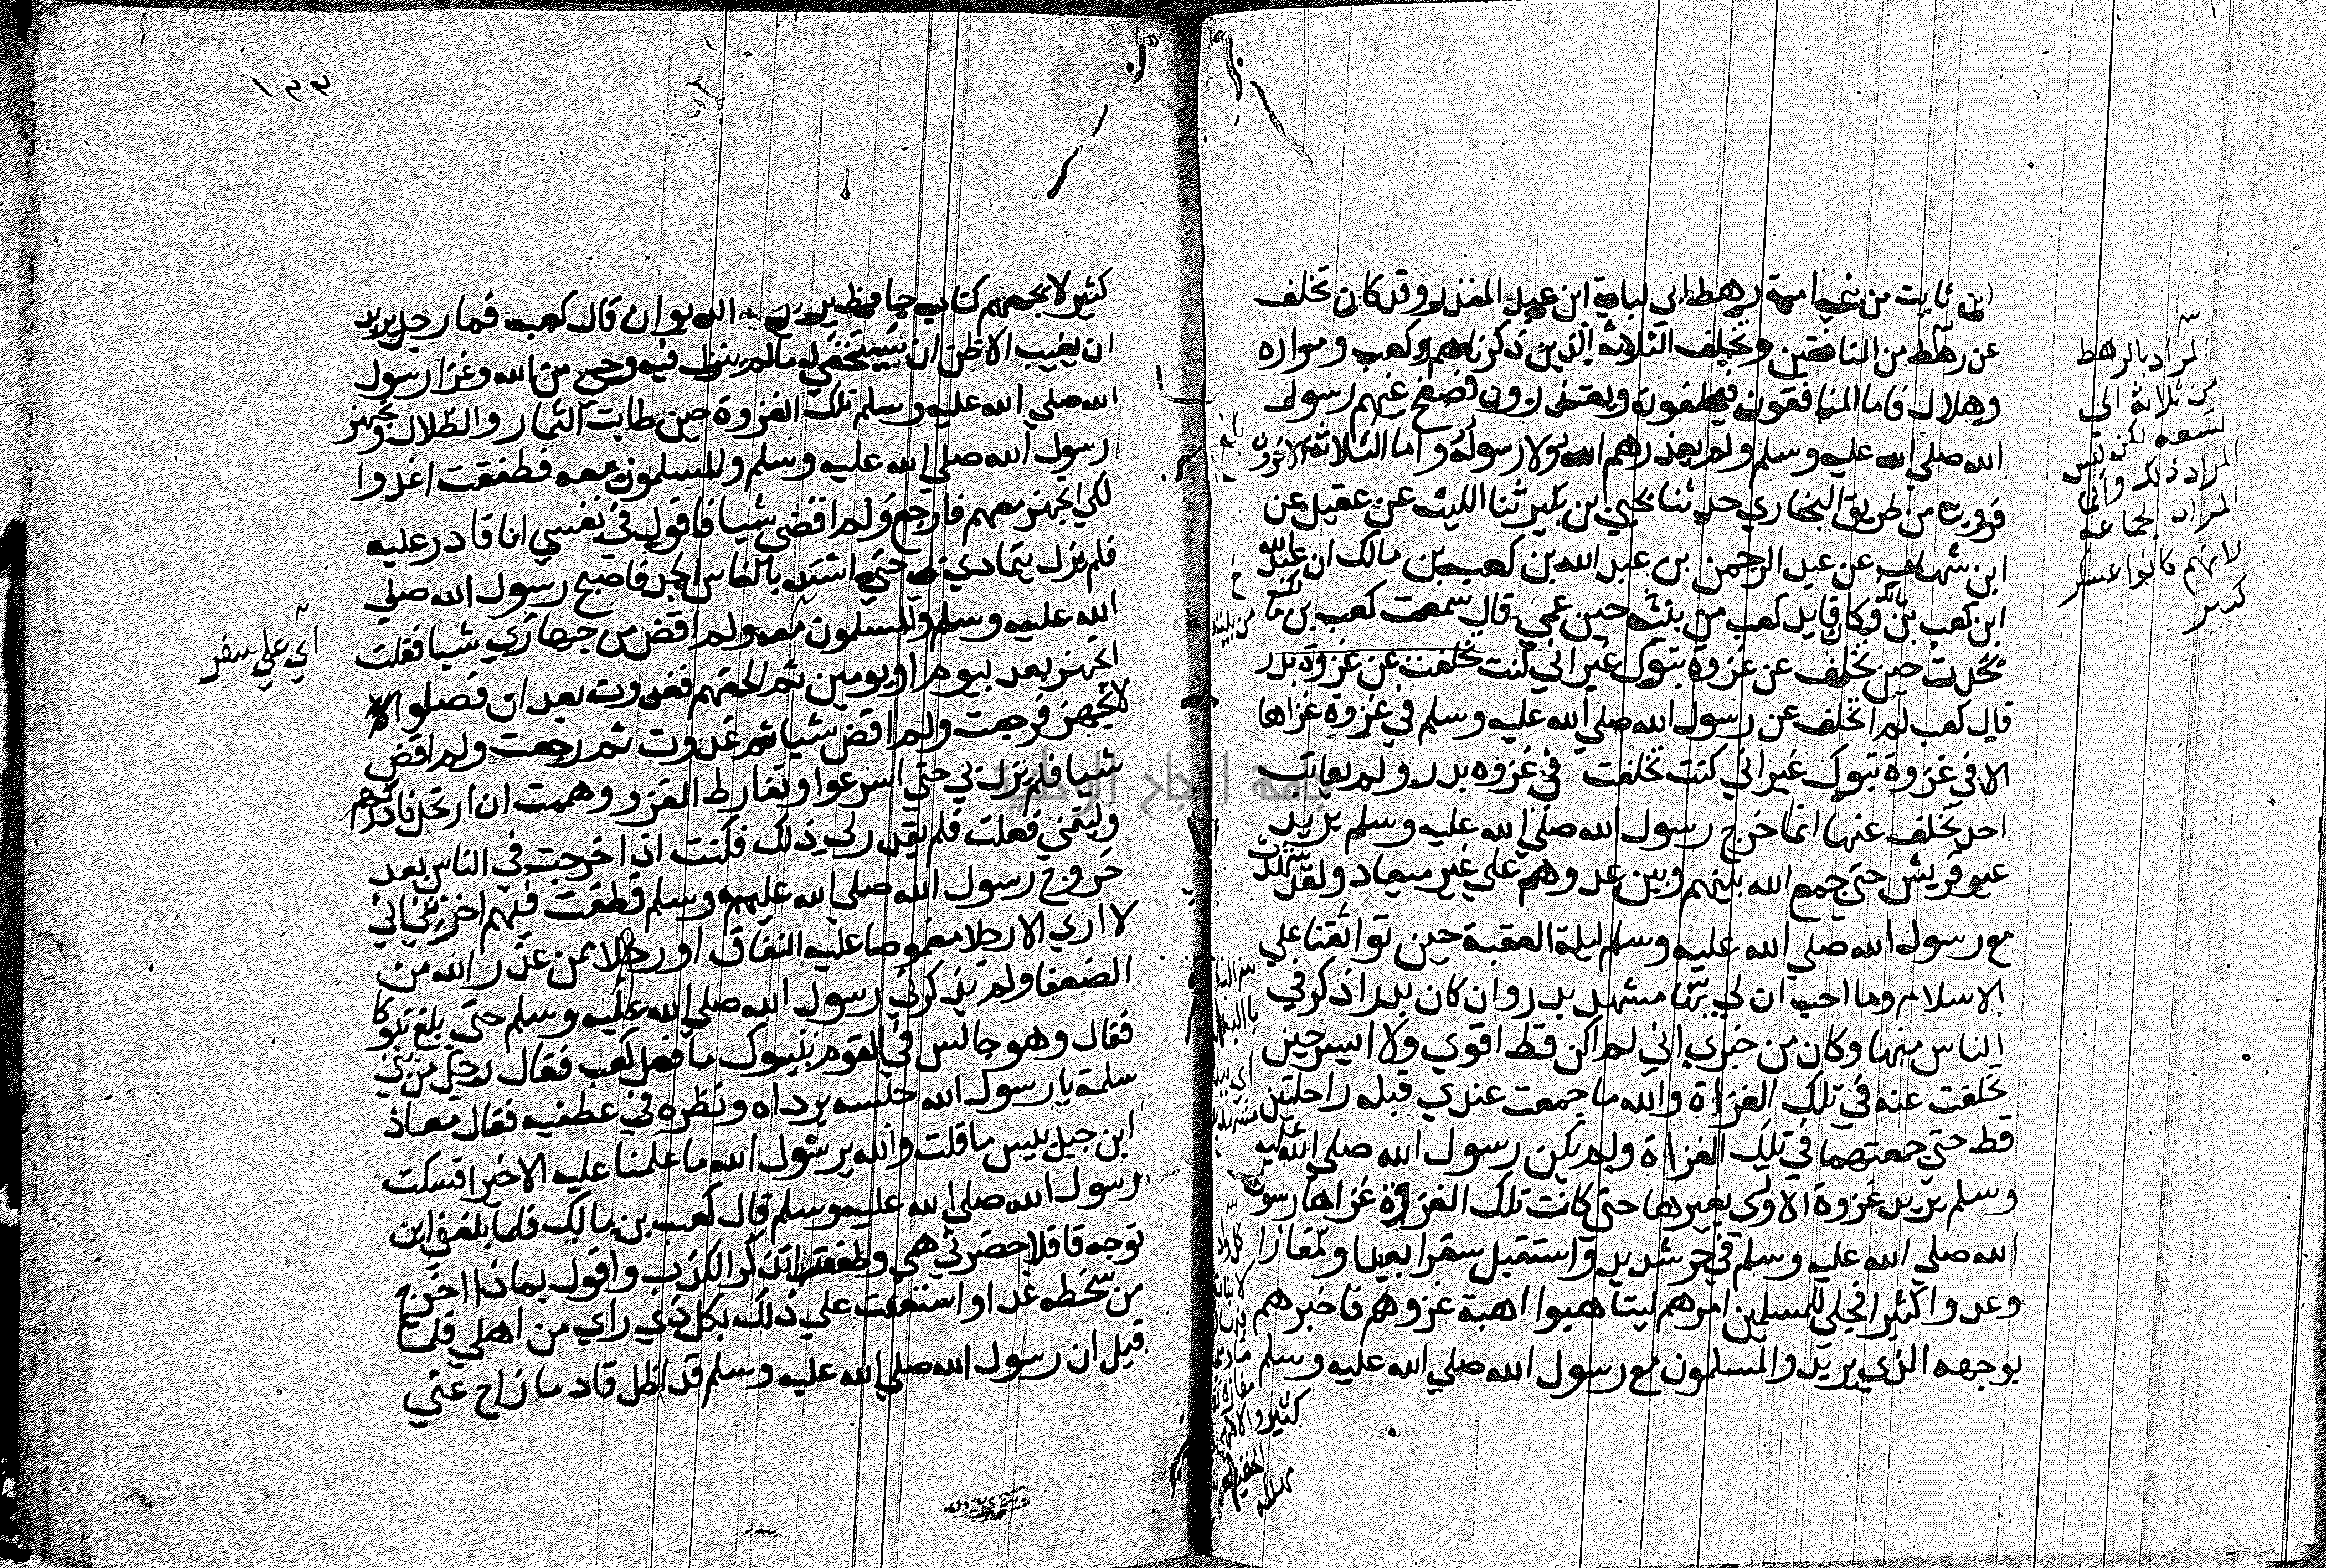 ابن ثابت من بني امية رهط ابي لبابة ابن عبد المنذر وقد كان تخلف
عن رهط من المنافقين وتخلف الثلاثة الذين ذكرناهم وكعب ومراره
وهلال فاما المنافقون فيحلفون ويعتذرون فصفح عنهم رسول
الله صلي الله عليه وسلم ولم يعذرهم الله ولا رسوله واما الثلاثة الاخرون
فروينا من طريق البخاري حدثنا يحيي بن بكير ثنا الليث عن عقيل عن
ابن شهاب عن عبد الرحمن بن عبد الله بن كعب بن مالك ان عبد الله
ابن كعب بن مالك وكان قايد كعب من بنيه حين عمي قال سمعت كعب بن مالك
تحدث حين تخلف عن غزوة تبوك غير اني كنت تخلفت عن غزوة بدر
قال كعب لم اتخلف عن رسول الله صلي الله عليه وسلم في غزوة غزاها
الا في غزوة تبوك غير اني كنت تخلفت في غزوه بدر ولم يعاتب
احد تخلف عنها انما خرج رسول الله صلي الله عليه وسلم يريد
عير قريش حتي جمع الله بينهم وبين عدوهم علي غير ميعاد ولقد شهدت
مع رسول الله صلي الله عليه وسلم ليلة العقبة حين تواثقنا علي
الاسلام وما احب ان لي بها مشهد بدر وان كان بدر اذكر في
الناس منها وكان من خبري اني لم اكن قط اقوي ولا ايسر حين
تخلفت عنه في تلك الغزاة والله ما جمعت عندي قبله راحلتين
قط حتي جمعتهما في تلك الغزاة ولم يكن رسول الله صلي الله عليه
وسلم يريد غزوة الا وري بغيرها حتي كانت تلك الغزوة غزاها رسول
الله صلي الله عليه وسلم في حر شديد واستقبل سفرا بعيدا ومفازا
وعدوا كثيرا فجلي للمسلمين امرهم ليتاهبوا اهبة غزوهم فاخبرهم
بوجهه الذي يريد والمسلمون مع رسول الله صلي الله عليه وسلم
المراد بالرهط
من ثلاثة الي
تسعه لكن ليس
المراد ذلك وانما
المراد الجماعة
لانهم كانوا عسكر
كبير
١٣٣
كثير لا يجمعهم كتاب حافظ يريد الديوان قال كعب فما رجل يريد
ان يغيب الا ظن ان سيستخفي له مالم ينزل فيه وحي من الله وغزا رسول
الله صلي الله عليه وسلم تلك الغزوة حين طابت الثمار والظلال وتجهز
رسول الله صلي الله عليه وسلم والمسلمون معه فطفقت اغدوا
لكي اتجهز معهم فارجع ولم اقضي شيا فاقول في نفسي انا قادر عليه
فلم يزل يتمادي بي حتي اشتد بالناس الجد فاصبح رسول الله صلي
الله عليه وسلم والمسلمون معه ولم اقض من جهازي شيا فقلت
اتجهز بعد بيوم او يومين ثم الحقهم فغدوت بعد ان فصلوا
لاتجهز فرجعت ولم اقض شيا ثم غدوت ثم رجعت ولم اقض
شيا فلم يزل بي حتي اسرعوا وتفارط الغزو وهممت ان ارتحل فادركهم
وليتني فعلت فلم يقدر لي ذلك فكنت اذا خرجت في الناس بعد
خروج رسول الله صلي الله عليه وسلم فطفت فيهم احزنني اني
لا اري الا رجلا مغموصا عليه النفاق او رجلا ممن عذر الله من
الضعفا ولم يذكرني رسول الله صلي الله عليه وسلم حتي بلغ تبوكا
فقال وهو جالس في القوم بتبوك ما فعل كعب فقال رجل من بني
سلمة يا رسول الله حبسه برداه ونظره في عطفيه فقال معاذ
ابن جبل بيس ما قلت والله يرسول الله ما علمنا عليه الا خيرا فسكت
رسول الله صلي الله عليه وسلم قال كعب بن مالك فلما بلغني ان
توجه قافلا حضرني همي وطفقت اتذكر الكذب واقول بماذا اخرج
من سخطه غدا واستعنت علي ذلك بكل ذي راي من اهلي فلما
قيل ان رسول الله صلي الله عليه وسلم قد اظل قاد ما زاح عني
اي علي سفر